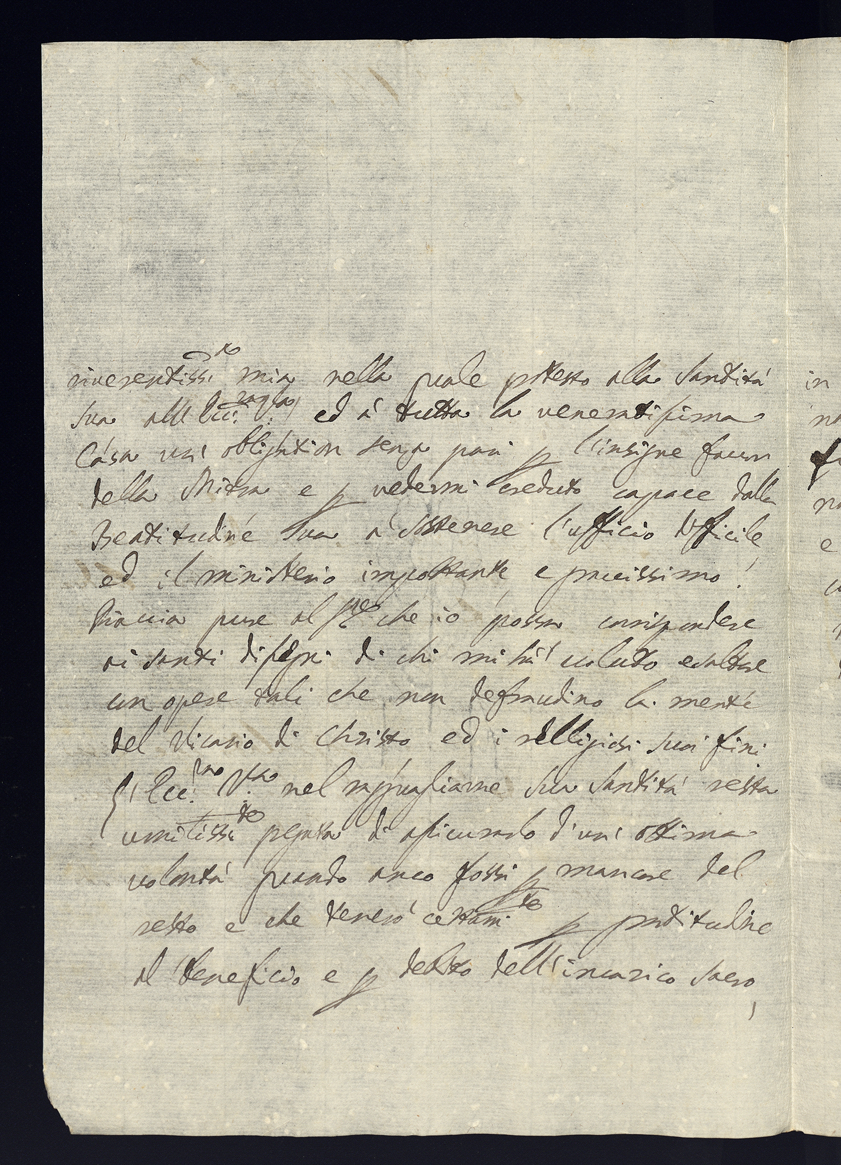 riverentissi.ma mia nella quale protesto alla Santità
Sua all'Ecc. ed à tutta la veneratissima
Casa un' obligation senza pari p l'insigne favor
della Mitra e p vedermi creduto capace dalla
Beatitudine Sua a sostenere l'ufficio difficile
ed il ministerio importante e
Piaccia pure al che io possa corrispondere
ai santi disegni di chi mi hà voluto esaltare
con opere tali che non defraudino la mente
del Vicario di Christo ed i relligiosi suoi fini
l'Ecc.za V.ra nel raguagliarne Sua Santità resta
umilissi.te pregata di assicurarlo d'un' ottima
volontà quando anco fossi p mancare del
resto e che tenerò certam.te p gratitudine
al beneficio e p debito dell'incarico sacro,
in
e